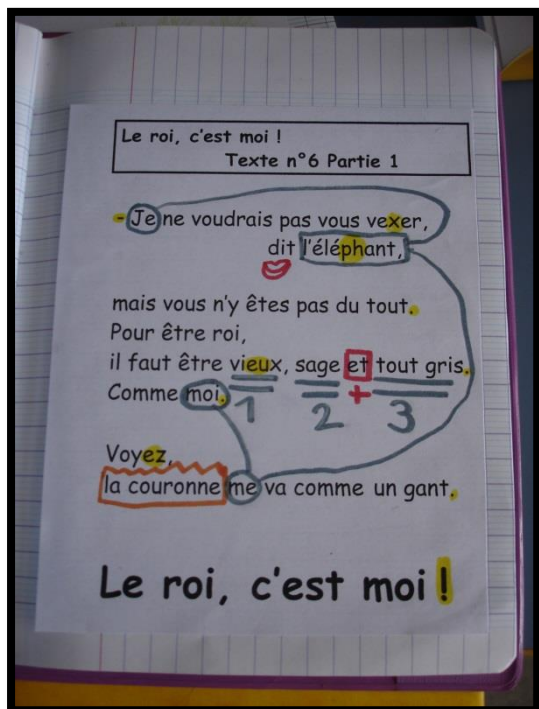 Le roi, c'est moi !
Texte n°6 Partie 1
- Je ne voudrais pas vous vexer,
dit l'éléphant,
mais vous n'y êtes pas du tout.
Pour être roi,
il faut être vieux, sage et tout gris.
Comme moi.
1 2 + 3
Voyez,
la couronne me va comme un gant.
Le roi, c'est moi !